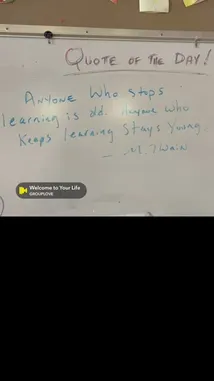 QUOTE OF THE DAY!
ANYONE WHO STOPS
learning is old. Anyone who
Keeps learning stays young.
— M. Twain
Welcome to Your Life
GROUPLOVE